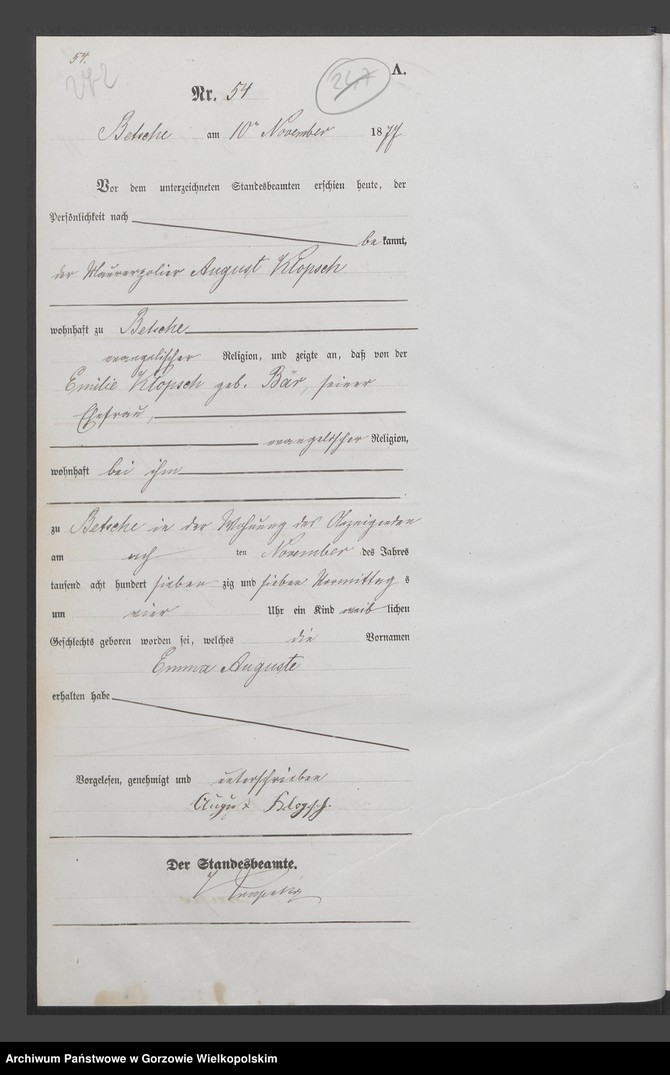 54.
242
247
A.
Nr. 54
Betsche am 10ten November 1877
Vor dem unterzeichneten Standesbeamten erschien heute, der
Persönlichkeit nach
bekannt,
der Maurerpolier August Klopsch
wohnhaft zu Betsche
evangelischer Religion, und zeigte an, daß von der
Emilie Klopsch geb. Bär, seiner
Ehefrau,
evangelischer Religion,
wohnhaft bei ihm
zu Betsche in der Wohnung des Anzeigenden
am ach ten November des Jahres
tausend acht hundert siebenzig und sieben Vormittags
um vier Uhr ein Kind weiblichen
Geschlechts geboren worden sei, welches die Vornamen
Emma Auguste
erhalten habe
Vorgelesen, genehmigt und unterschrieben
August Klopsch.
Der Standesbeamte.
Archiwum Państwowe w Gorzowie Wielkopolskim